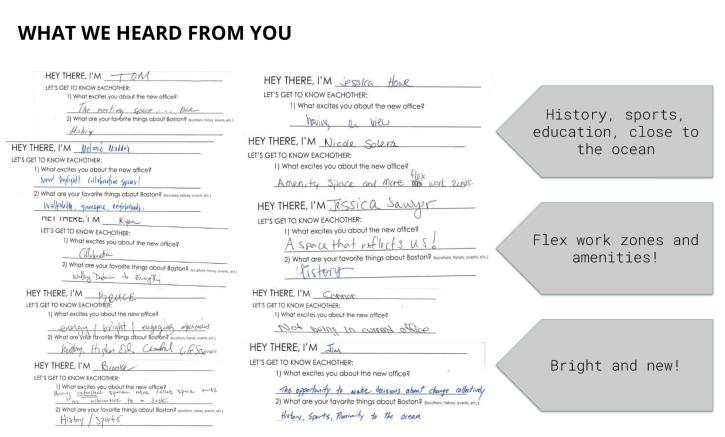 WHAT WE HEARD FROM YOU
HEY THERE, I'M TOM
LET'S GET TO KNOW EACHOTHER:
1) What excites you about the new office?
The meeting space
2) What are your favorite things about Boston? (locations, history, events, etc.)
History
HEY THERE, I'M Melanie Maddox
LET'S GET TO KNOW EACHOTHER:
1) What excites you about the new office?
New! Daylight! Collaborative spaces!
2) What are your favorite things about Boston? (locations, history, events, etc.)
Walkability, greenspace, neighborhoods.
HEY THERE, I'M Ryan
LET'S GET TO KNOW EACHOTHER:
1) What excites you about the new office?
Collaboration
2) What are your favorite things about Boston? (locations, history, events, etc.)
Walking Distance to Everything
HEY THERE, I'M BRUCE
LET'S GET TO KNOW EACHOTHER:
1) What excites you about the new office?
energy / bright / engaging
2) What are your favorite things about Boston? (locations, history, events, etc.)
History, Higher Ed, Life Sciences
HEY THERE, I'M Brooke
LET'S GET TO KNOW EACHOTHER:
1) What excites you about the new office?
more collab space
alternative to a desk.
2) What are your favorite things about Boston? (locations, history, events, etc.)
History / sports
HEY THERE, I'M Jessica Howe
LET'S GET TO KNOW EACHOTHER:
1) What excites you about the new office?
having a view
HEY THERE, I'M Nicole Solera
LET'S GET TO KNOW EACHOTHER:
1) What excites you about the new office?
Amenity Space and More flex work zones
HEY THERE, I'M Jessica Sawyer
LET'S GET TO KNOW EACHOTHER:
1) What excites you about the new office?
A space that reflects us!
2) What are your favorite things about Boston? (locations, history, events, etc.)
History
HEY THERE, I'M Connor
LET'S GET TO KNOW EACHOTHER:
1) What excites you about the new office?
Not being in current office
HEY THERE, I'M Jim
LET'S GET TO KNOW EACHOTHER:
1) What excites you about the new office?
The opportunity to make decisions about change collectively
2) What are your favorite things about Boston? (locations, history, events, etc.)
History, Sports, Proximity to the ocean
History, sports,
education, close to
the ocean
Flex work zones and
amenities!
Bright and new!